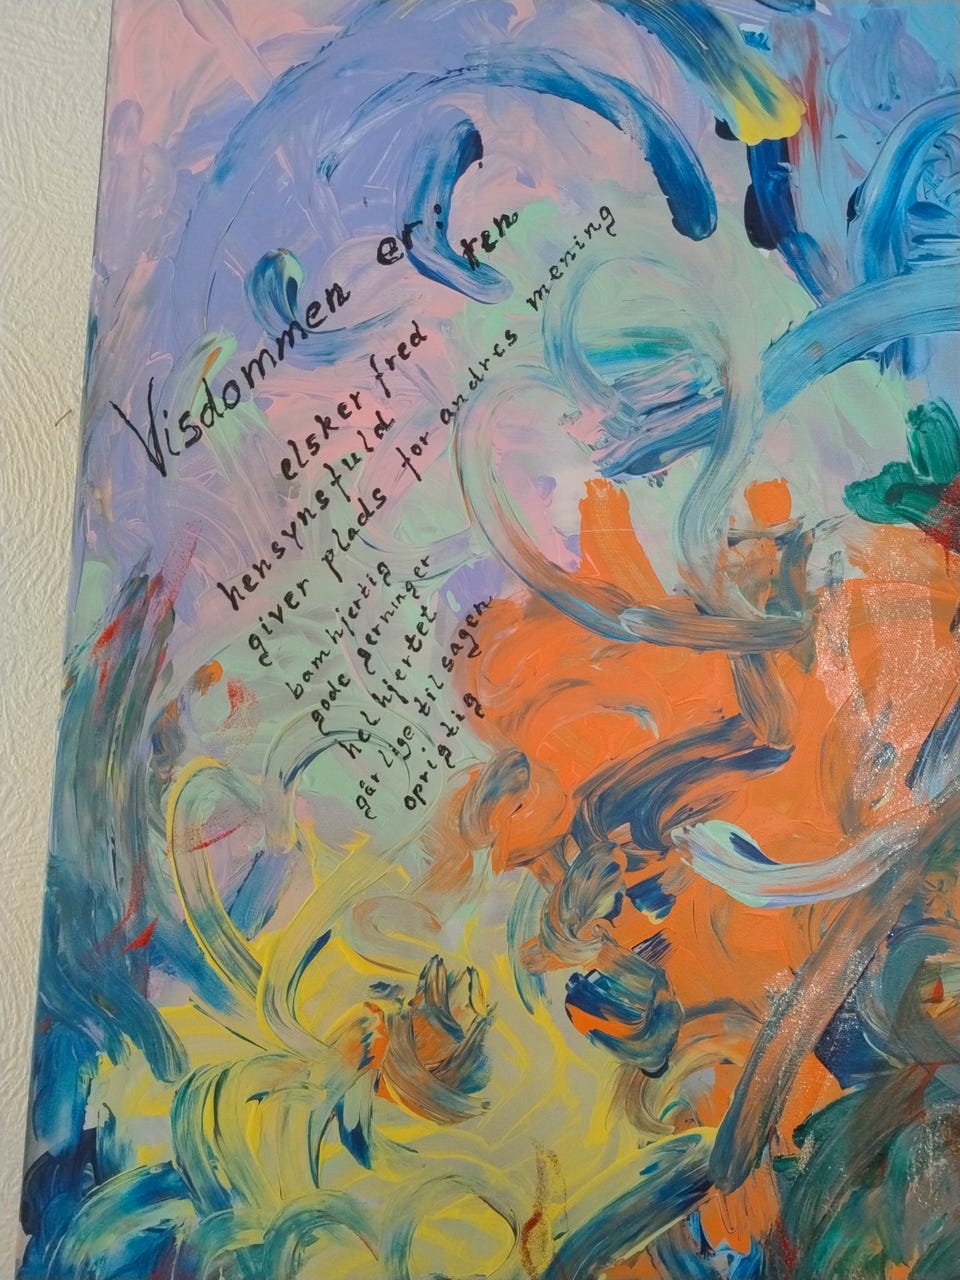 Visdommen er:
ren
elsker fred
hensynsfuld
giver plads for andres mening
bamhjertig
gode gerninger
hel hjertet
går lige til sagen
oprigtig